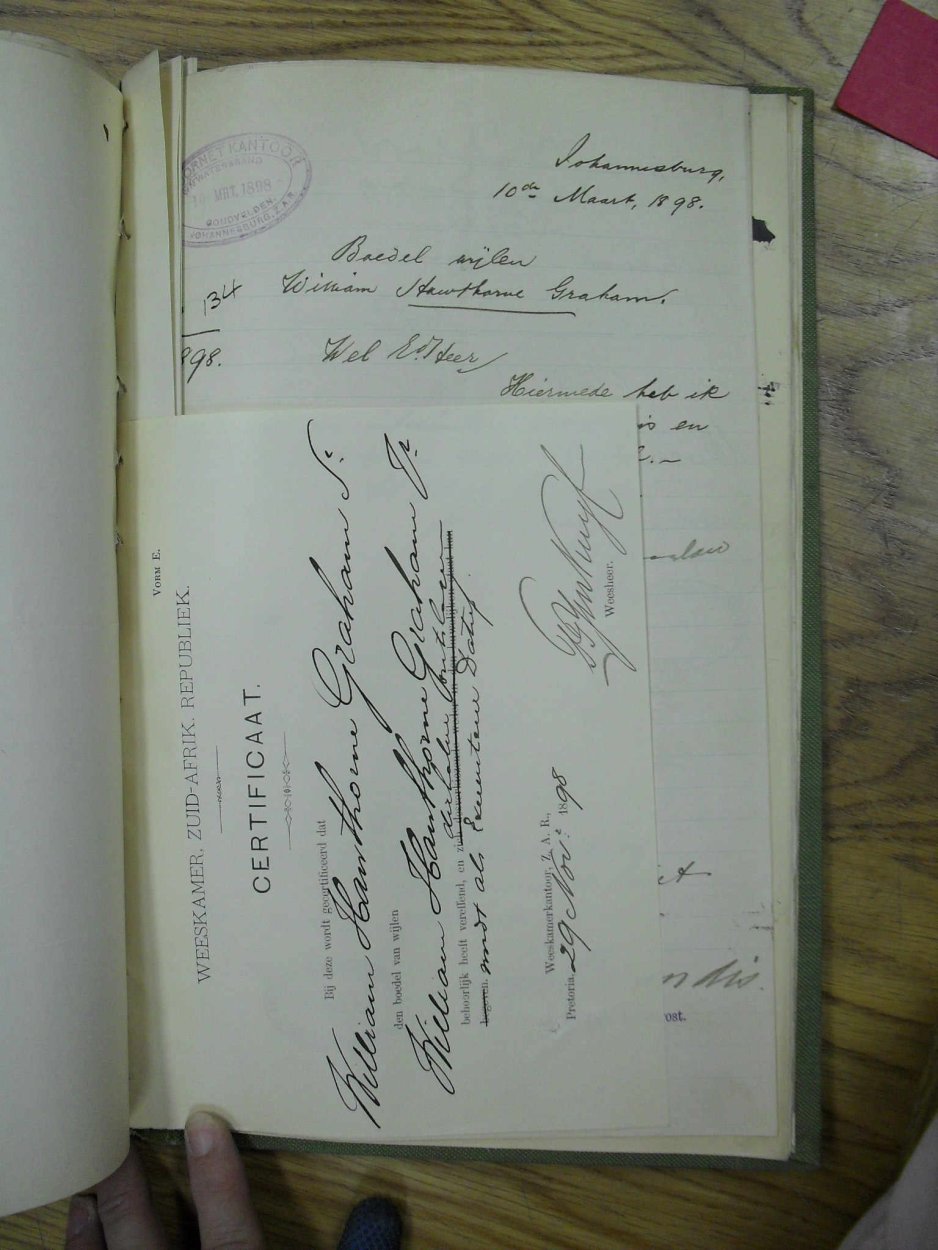 ORNET KANTOOR
WITWATERSRAND
10 MRT. 1898
GOUDVELDEN.
JOHANNESBURG, Z.A.R.
Johannesburg,
10de Maart, 1898.
Boedel wijlen
William Hawthorne Graham.
134
898.
Wel Ed. Heer,
Hiermede heb ik
is en
ost.
VORM E.
WEESKAMER, ZUID-AFRIK. REPUBLIEK.
CERTIFICAAT.
Bij deze wordt gecertificeerd dat
William Hawthorne Graham Sr.
den boedel van wijlen
William Hawthorne Graham Jr
behoorlijk heeft vereffend, en
derhalve ontslagen
wordt als Executeur Datief
Weeskamerkantoor, Z. A. R.,
Pretoria, 29 Nov. 1898
Weesheer.